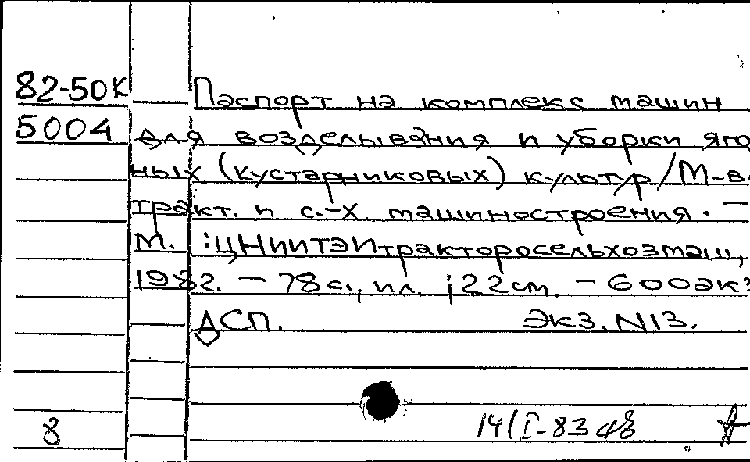 82-50К Паспорт на комплекс машин
5004 для возделывания и уборки яго
ных (кустарниковых) культур/М-в
тракт. и с.-х. машиностроения. –
М. : ЦНИИТЭИтракторосельхозмаш,
1982. – 78 с., ил. ; 22 см. – 600 экз
ДСП. Экз. N13.
8 14/I-83